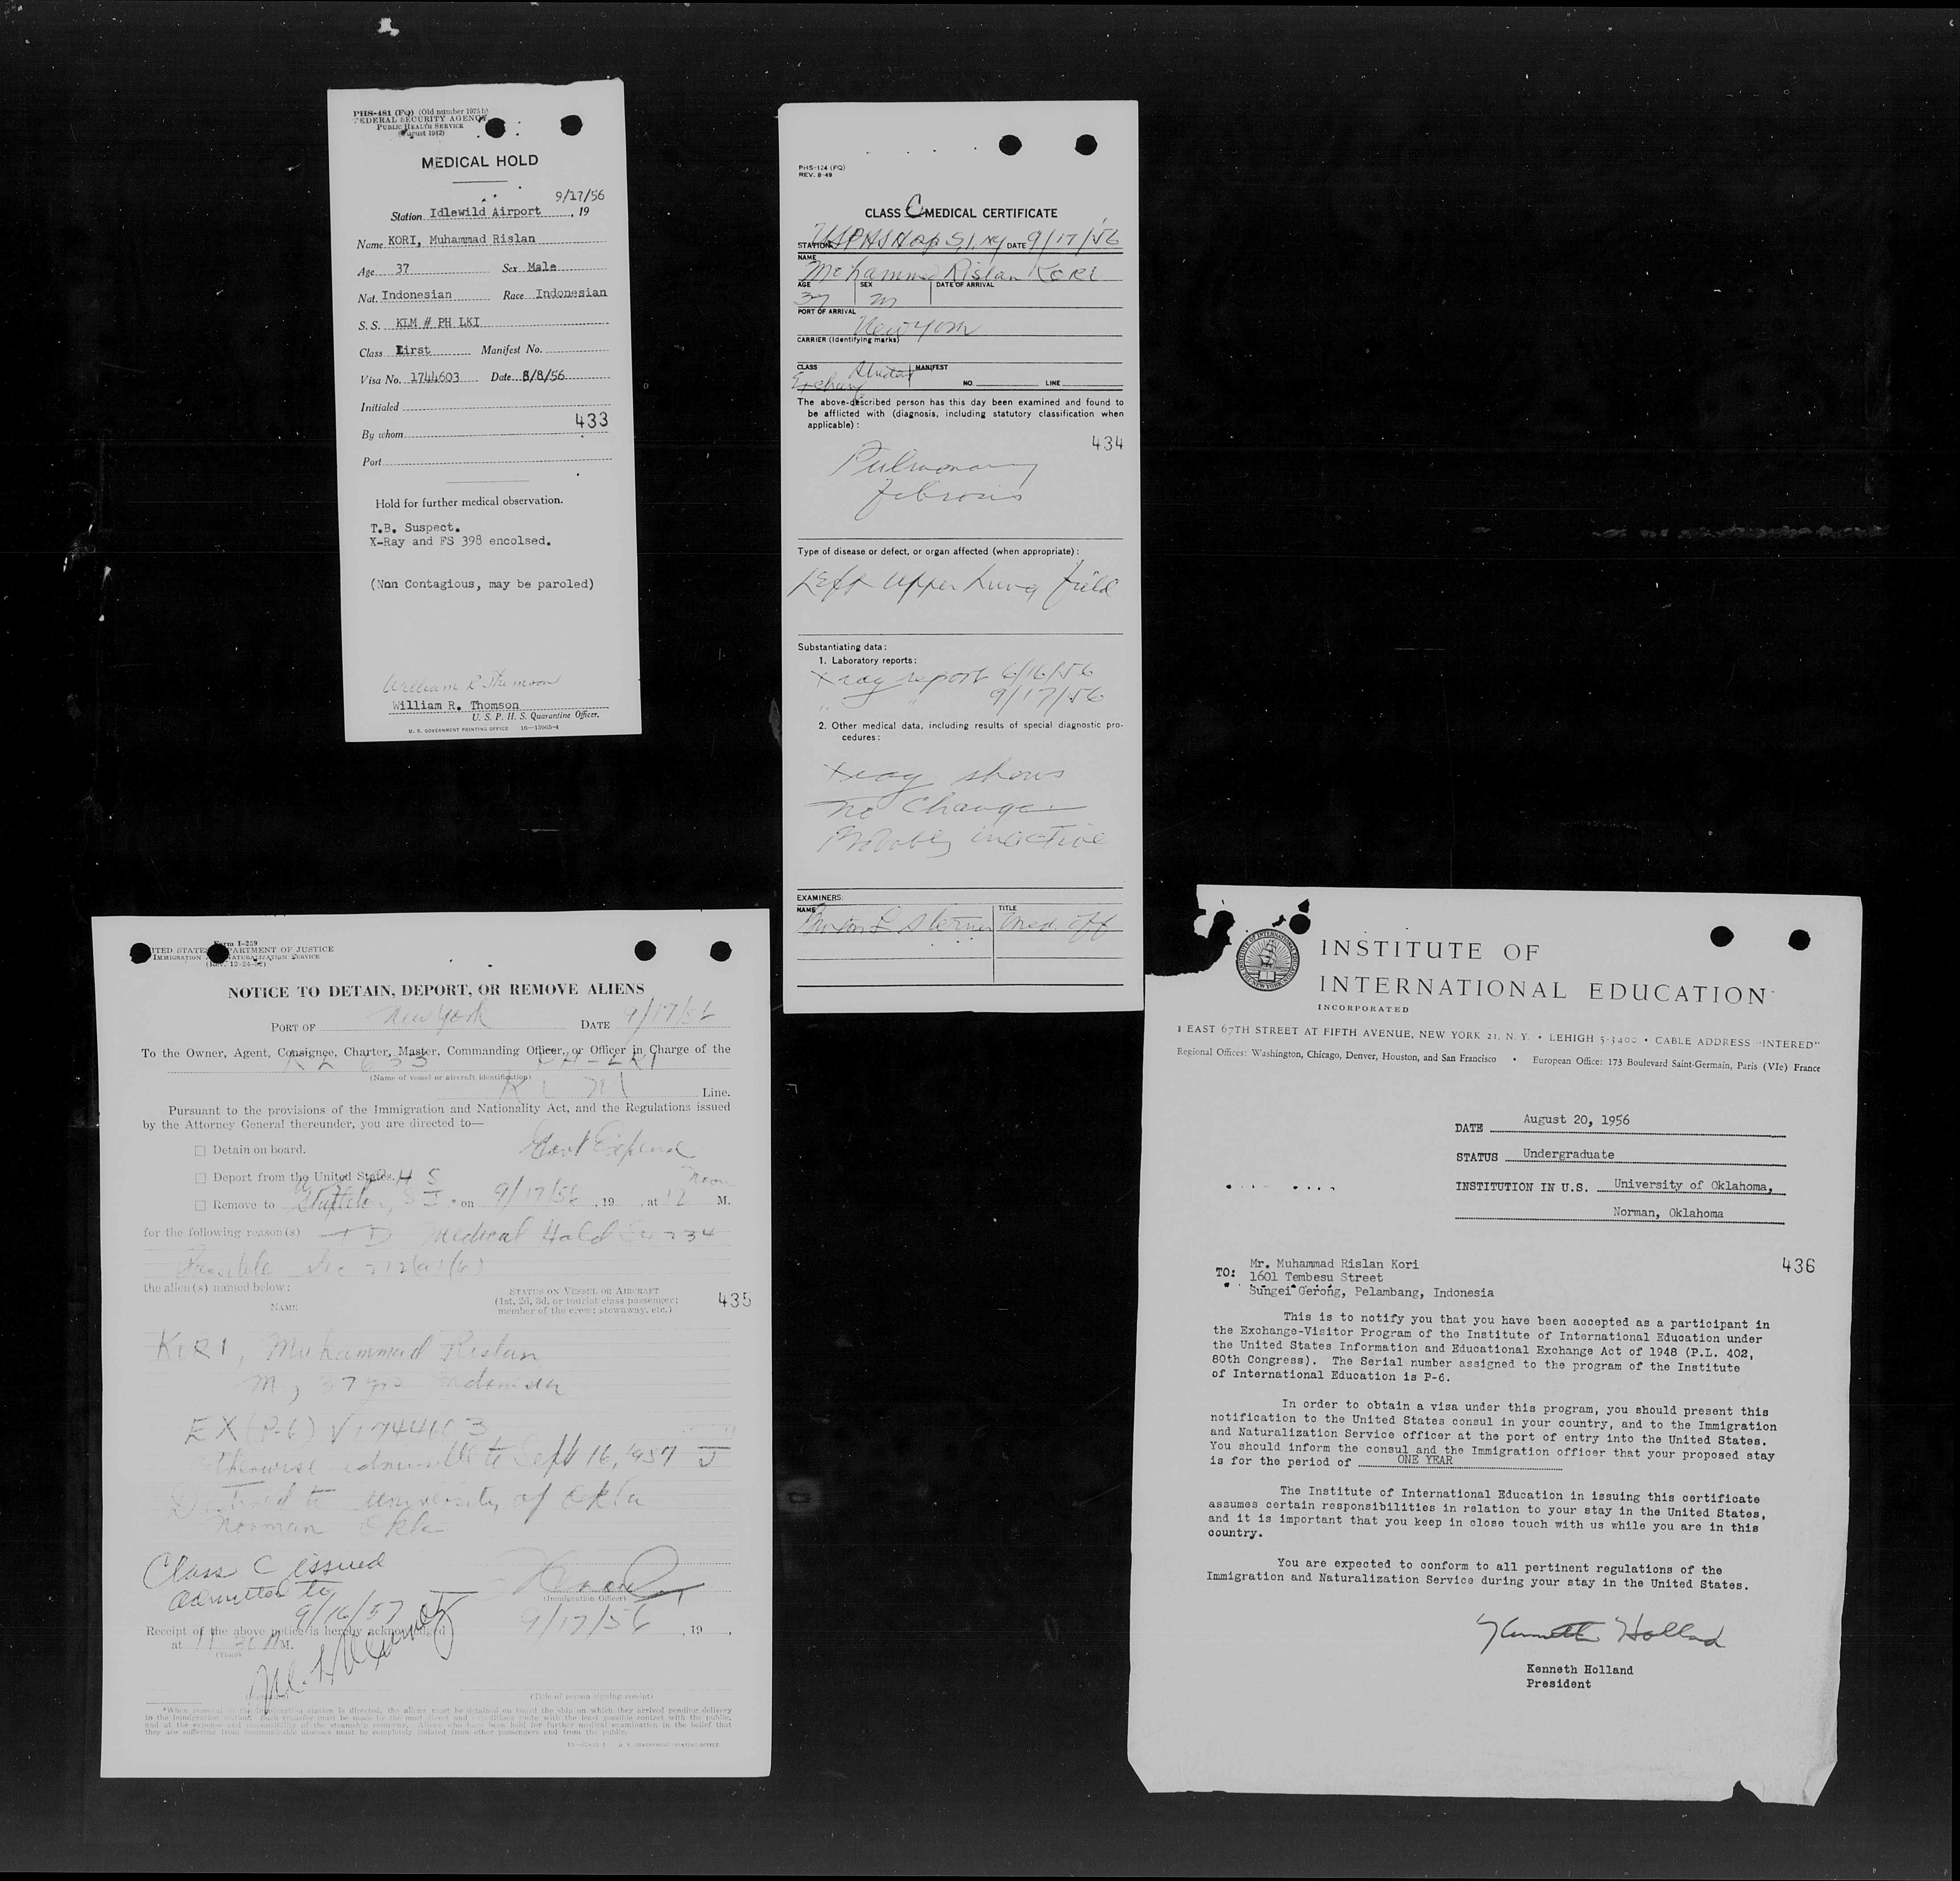 PHS-481 (FQ) (Old number 1975b)
FEDERAL SECURITY AGENCY
PUBLIC HEALTH SERVICE
(August 1942)
MEDICAL HOLD
9/17/56
Station Idlewild Airport, 19
Name KORI, Muhammad Rislan
Age 37 Sex Male
Nat. Indonesian Race Indonesian
S. S. KLM # PH LKI
Class First Manifest No.
Visa No. 1744603 Date 8/8/56
Initialed
433
By whom
Port
Hold for further medical observation.
T.B. Suspect.
X-Ray and FS 398 encolsed.
(Non Contagious, may be paroled)
William R Thomson
William R. Thomson
U. S. P. H. S. Quarantine Officer.
U. S. GOVERNMENT PRINTING OFFICE 16—15965-4
PHS-124 (FQ)
REV. 8-49
CLASS C MEDICAL CERTIFICATE
STATION USPHS Hosp S.I. NY DATE 9/17/56
NAME
Mohammed Rislan KORI
AGE SEX DATE OF ARRIVAL
37 M
PORT OF ARRIVAL
New York
CARRIER (Identifying marks)
CLASS Student MANIFEST
Exchange NO. LINE
The above-described person has this day been examined and found to
be afflicted with (diagnosis, including statutory classification when
applicable):
434
Pulmonary
fibrosis
Type of disease or defect, or organ affected (when appropriate):
Left upper lung field
Substantiating data:
1. Laboratory reports:
Xray report 6/16/56
" " 9/17/56
2. Other medical data, including results of special diagnostic pro-
cedures:
Xray shows
no change
Probably inactive
EXAMINERS:
NAME TITLE
Med. Off
Form I-259
UNITED STATES DEPARTMENT OF JUSTICE
IMMIGRATION AND NATURALIZATION SERVICE
(Rev. 12-24-52)
NOTICE TO DETAIN, DEPORT, OR REMOVE ALIENS
PORT OF New York DATE 9/17/56
To the Owner, Agent, Consignee, Charter, Master, Commanding Officer, or Officer in Charge of the
KL 633 PH-LKI
(Name of vessel or aircraft identification)
KLM Line.
Pursuant to the provisions of the Immigration and Nationality Act, and the Regulations issued
by the Attorney General thereunder, you are directed to—
☐ Detain on board. Govt Expense
☐ Deport from the United States.
U S P H S
☐ Remove to Stapleton, S I * on 9/17/56, 19 , at 12 Noon M.
for the following reason(s) Medical Hold Sec 234
Possible Sec 212(a)(6)
the alien(s) named below:
NAME
STATUS ON VESSEL OR AIRCRAFT
(1st, 2d, 3d, or tourist class passenger;
member of the crew; stowaway, etc.)
435
KORI, Muhammad Rislan
M, 37 yrs Indonesian
EX (P-6) V 1744603
Otherwise admissible to Sept 16, 1957
Destined to University of Okla
Norman Okla
Class C issued
admitted to
9/16/57
(Immigration Officer)
9/17/56, 19 ,
Receipt of the above notice is hereby acknowledged
at 11 30 A M.
(Time)
(Title of person signing receipt)
*When removal to the immigration station is directed, the aliens must be detained on board the ship on which they arrived pending delivery
to the immigration station. Such transfer must be made by the most direct and expeditious route with the least possible contact with the public,
and at the expense and responsibility of the steamship company. Aliens who have been held for further medical examination in the belief that
they are suffering from communicable diseases must be completely isolated from other passengers and from the public.
U. S. GOVERNMENT PRINTING OFFICE
INSTITUTE OF
INTERNATIONAL EDUCATION
INCORPORATED
1 EAST 67TH STREET AT FIFTH AVENUE, NEW YORK 21, N. Y. • LEHIGH 5-3400 • CABLE ADDRESS "INTERED"
Regional Offices: Washington, Chicago, Denver, Houston, and San Francisco • European Office: 173 Boulevard Saint-Germain, Paris (VIe) France
DATE August 20, 1956
STATUS Undergraduate
INSTITUTION IN U.S. University of Oklahoma,
Norman, Oklahoma
436
TO: Mr. Muhammad Rislan Kori
1601 Tembesu Street
Sungei Gerong, Pelambang, Indonesia
This is to notify you that you have been accepted as a participant in
the Exchange-Visitor Program of the Institute of International Education under
the United States Information and Educational Exchange Act of 1948 (P.L. 402,
80th Congress). The Serial number assigned to the program of the Institute
of International Education is P-6.
In order to obtain a visa under this program, you should present this
notification to the United States consul in your country, and to the Immigration
and Naturalization Service officer at the port of entry into the United States.
You should inform the consul and the Immigration officer that your proposed stay
is for the period of ONE YEAR
The Institute of International Education in issuing this certificate
assumes certain responsibilities in relation to your stay in the United States,
and it is important that you keep in close touch with us while you are in this
country.
You are expected to conform to all pertinent regulations of the
Immigration and Naturalization Service during your stay in the United States.
Kenneth Holland
Kenneth Holland
President